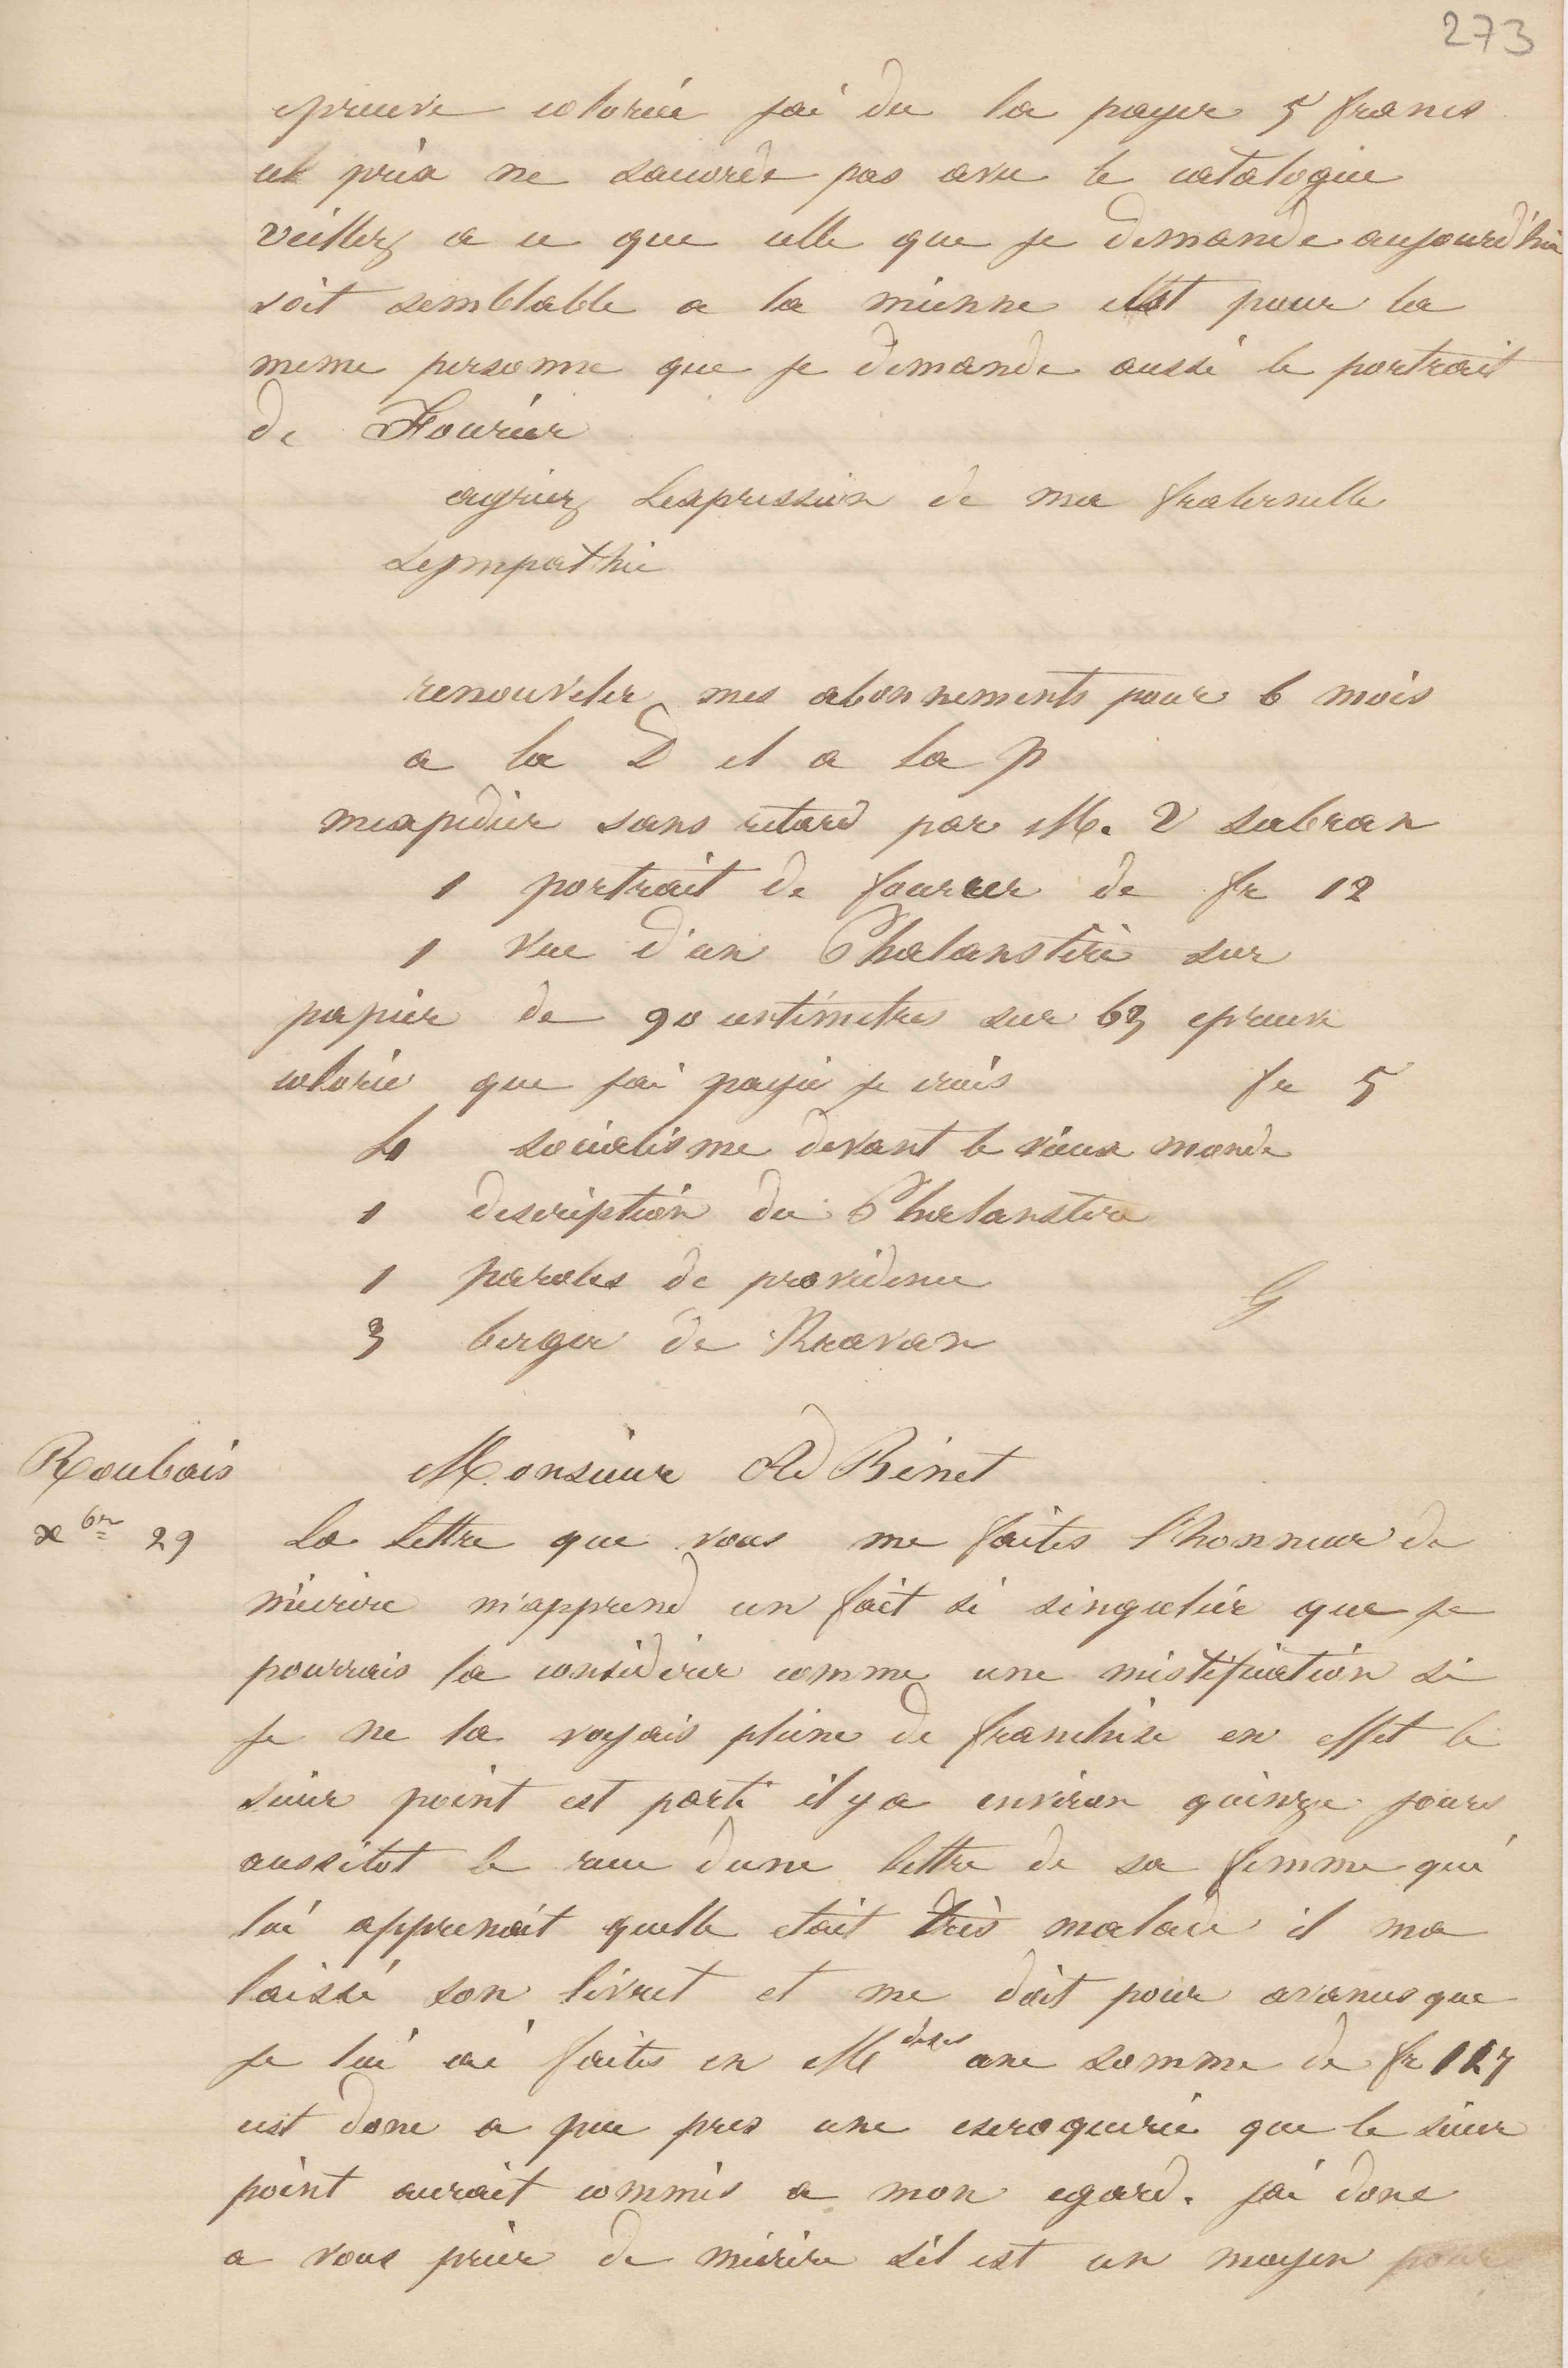 273
epreuve coloriée jai du la payer 5 francs
cet prix ne saccorde pas avec le catalogue
veillez a ce que celle que je demande aujourd'hui
soit semblable a la mienne cest pour la
meme personne que je demande aussi le portrait
de Fourier
agriez lexpression de ma fraternelle
sympathie
renouveler mes abonnements pour 6 mois
a la D et a la p
mexpedier sans retard par M. V Sabran
1 portrait de fourier de fr 12
1 vue d'un Phalanstère sur
papier de 90 centimetres sur 63 epreuve
colorié que jai payée je crois fr 5
socialisme devant le vieux monde
1 description du Phalanstere
1 paroles de providence
3 berger de Kravan
Roubaix Monsieur Ad Binet
x bre 29 La lettre que vous me faites l'honneur de
m'écrire m'apprend un fait si singulier que je
pourrais la considérer comme une mistification si
je ne la voyais pleine de franchise en effet le
sieur point est parti il y a environ quinze jours
aussitot le recu dune lettre de sa femme qui
lui apprenait quelle etait très malade il ma
laissé son livret et me doit pour avances que
je lui ai faites en Mdises une somme de fr 127
cest donc a peu pres une escroquerie que le sieur
point aurait commis a mon egard. jai donc
a vous prier de mécrire sil est un moyen pour